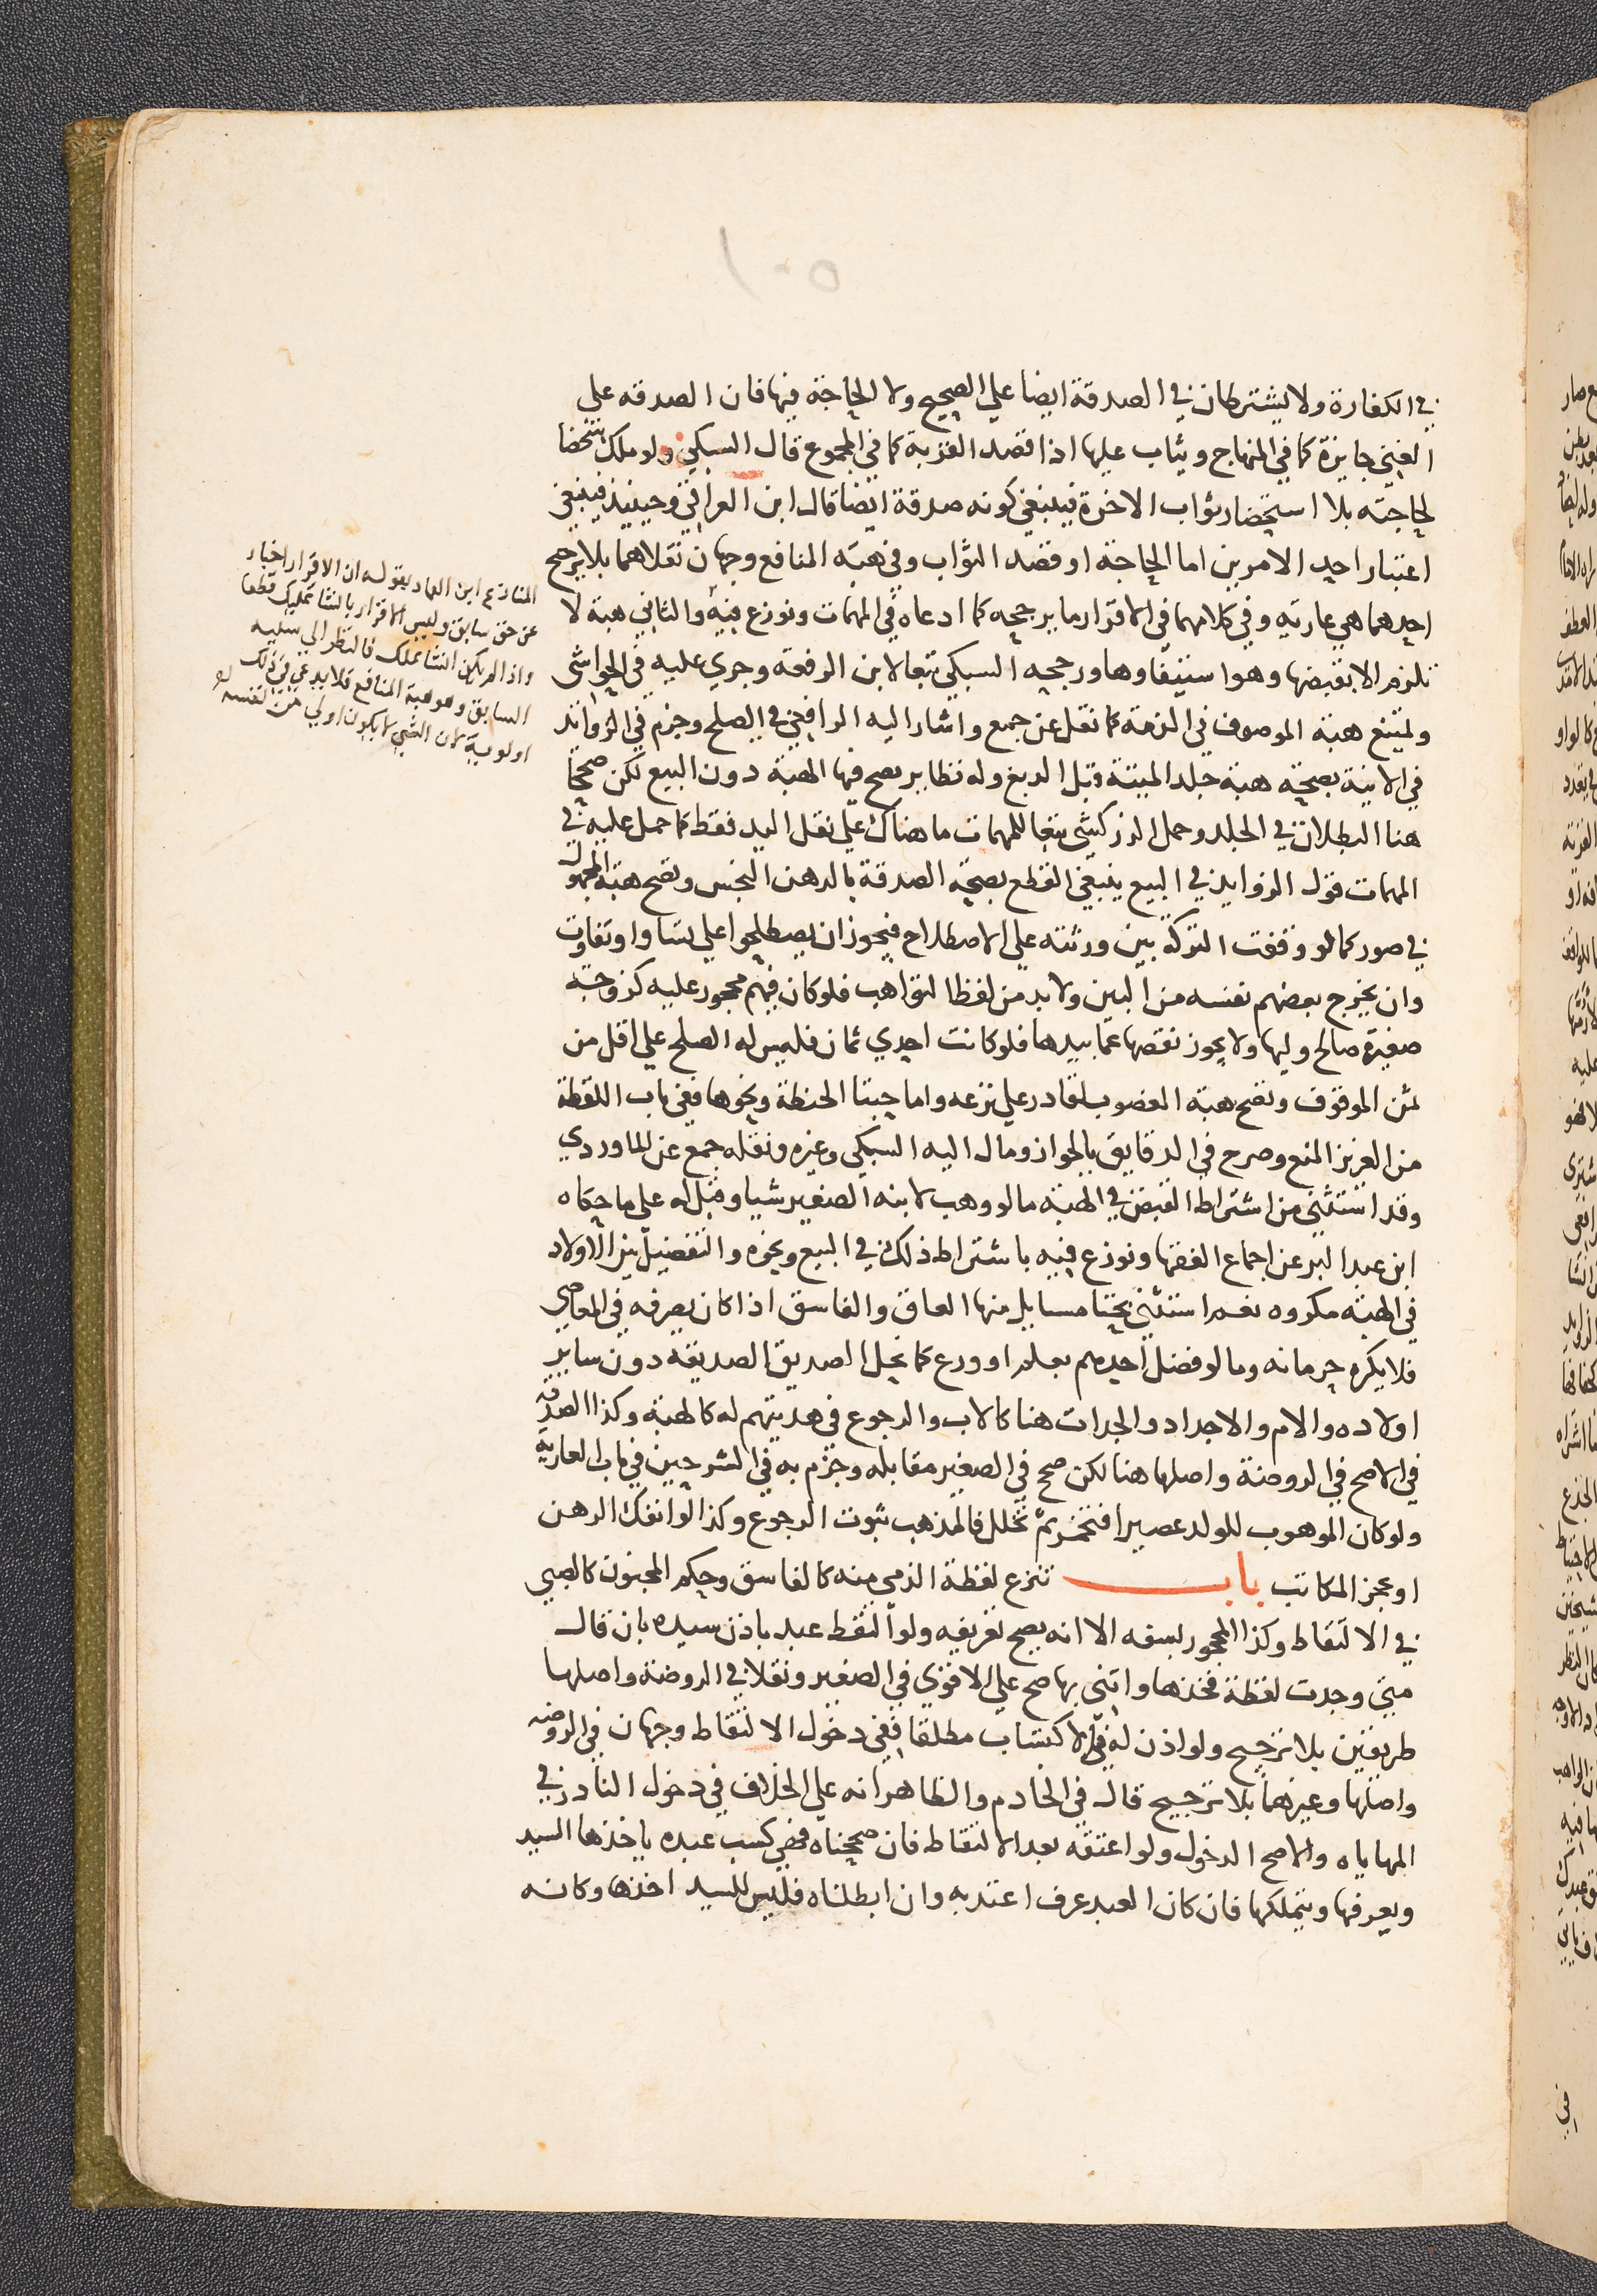 في الكفارة ولا يشترطان في الصدقة ايضا علي الصحيح ولا الحاجة فيها فان الصدقه علي
الغني جايزة كما في المنهاج ويثاب عليها اذا قصد القربة كما في المجموع قال السبكي ولو ملك شخصا
لحاجته بلا استحضار ثواب الاخرة فينبغي كونه صدقة ايضا قال ابن العراقي وحينيذ فينبغي
اعتبار احد الامرين اما الحاجة او قصد الثواب وفي هبة المنافع وجهان نقلاهما بلا ترجيح
احدهما هي عارية وفي كلامهما في الاقرار ما يرجحه كما ادعاه في المهمات ونوزع فيه والثاني هبة لا
تلزم الا بقبضها وهو استيفاوها ورجحه السبكي تبعا لابن الرفعة وجري عليه في الحواشي
ولمتنع هبة الموصوف في الذمة كما نقل عن جمع واشار اليه الرافعي في الصلح وجزم في الزوائد
في الانية بصحة هبة جلد الميتة قبل الدبغ وله نظاير يصح فيها الهبة دون البيع لكن صححا
هنا البطلان في الجلد وحمل الزركشي تبعا للمهمات ما هناك علي نقل اليد فقط كما حمل عليه في
المهمات قول الزوايد في البيع ينبغي القطع بصحة الصدقة بالدهن النجس وتصح هبة المجهول
في صور كما لو وقفت التركة بين ورثته علي الاصطلاح فيجوز ان يصطلحوا علي تساو او تفاوت
وان يخرج بعضهم نفسه من البين ولا بد من لفظ التواهب فلو كان فيهم محجور عليه كزوجة
صغيرة صالح وليها ولا يجوز نقصها عما بيدها فلو كانت احدي ثمان فليس له الصلح علي اقل من
ثمن الموقوف وتصح هبة المغصوب لقادر علي نزعه واما حبتا الحنطة ونحوها ففي باب اللقطة
من العزيز المنع وصرح في الدقايق بالجواز ومال اليه السبكي وغيره ونقله جمع عن الماوردي
وقد استثني من اشتراط القبض في الهبة ما لو وهب لابنه الصغير شيا وقبل له علي ما حكاه
ابن عبد البر عن اجماع الفقها ونوزع فيه باشتراط ذلك في البيع ونحوه والتفضيل بين الاولاد
في الهبة مكروه نعم استثني بحثا مسايل منها العاق والفاسق اذا كان يصرفه في المعاصي
فلا يكره حرمانه وما لو فضل احدهم بعلم او ورع كما نحل الصديق الصديقة دون ساير
اولاده والام والاجداد والجدات هنا كالاب والرجوع في هديتهم له كالهبة وكذا الصدقة
في الاصح في الروضة واصلها هنا لكن صحح في الصغير مقابله وجزم به في الشرحين في باب العارية
ولو كان الموهوب للولد عصيرا فتخمر ثم تخلل فالمذهب ثبوت الرجوع وكذا لو انفك الرهن
او عجز المكاتب باب تنزع لقطة الذمي منه كالفاسق وحكم المجنون كالصبي
في الالتقاط وكذا المحجور لسفه الا انه يصح تعريفه ولو التقط عبد باذن سيده بان قال
متي وجدت لقطة فخذها وايتني بها صح علي الاقوي في الصغير ونقلا في الروضة واصلها
طريقين بلا ترجيح ولو اذن له في الاكتساب مطلقا ففي دخول الالتقاط وجهان في الروضه
واصلها وغيرهما بلا ترجيح قال في الخادم والظاهر انه علي الخلاف في دخول النادر في
المهاياه والاصح الدخول ولو اعتقه بعد الالتقاط فان صححناه فهي كسب عبده ياخذها السيد
ويعرفها ويتملكها فان كان العبد عرف اعتد به وان ابطلناه فليس للسيد اخذها وكانه
المنازع ابن العماد بقوله ان الاقرار اخبار
عن حق سابق وليس الاقرار بانشا تمليك قطعا
واذا لم يكن انشا تملك فالنظر الي سببه
السابق وهو هبة المنافع فلا بد عي في ذلك
اولوية لان الشي لا يكون اولي من نفسه